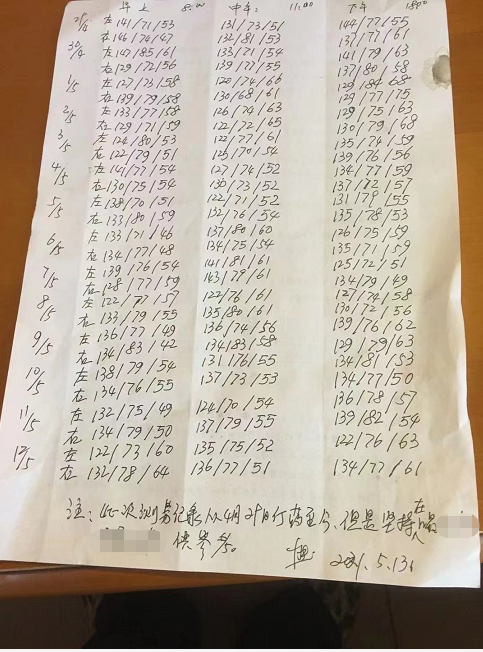 早上 8:00 中午: 11:00 下午 18:00
29/4 左 141/71/53 131/73/51 144/77/55
右 146/74/47 132/81/53 137/77/61
30/4 左 147/85/61 133/71/54 141/79/63
右 129/72/56 139/77/55 137/80/58
1/5 左 127/73/58 120/74/66 129/84/68
右 139/79/58 130/68/61 129/77/75
2/5 左 133/77/58 126/74/63 129/75/63
右 129/71/59 122/72/65 130/79/68
3/5 左 124/80/53 122/77/61 135/74/59
右 122/79/51 125/70/54 139/76/56
4/5 左 141/77/54 127/74/52 134/77/59
右 130/75/54 130/73/52 137/82/57
5/5 左 138/70/51 122/71/52 131/79/55
右 133/80/59 132/76/54 135/78/53
6/5 左 133/71/46 137/80/60 126/75/59
右 134/77/48 134/75/54 135/71/59
7/5 左 139/76/54 141/81/61 125/72/51
右 128/77/59 143/79/61 134/79/49
8/5 左 122/77/57 122/76/61 127/74/58
右 133/79/55 135/80/61 130/72/56
9/5 左 136/77/49 136/74/56 139/76/62
右 134/83/42 134/83/58 129/79/63
10/5 左 138/79/54 131/76/55 134/81/53
右 134/76/55 137/73/53 134/77/50
11/5 左 132/75/49 124/70/54 136/78/57
右 134/79/50 137/79/55 139/82/54
12/5 左 122/73/60 135/75/52 122/76/63
右 132/78/64 136/77/51 134/77/61
注: 此次测量记录从4月29日停药至今、但是坚持在
供参考。 2021.5.13.